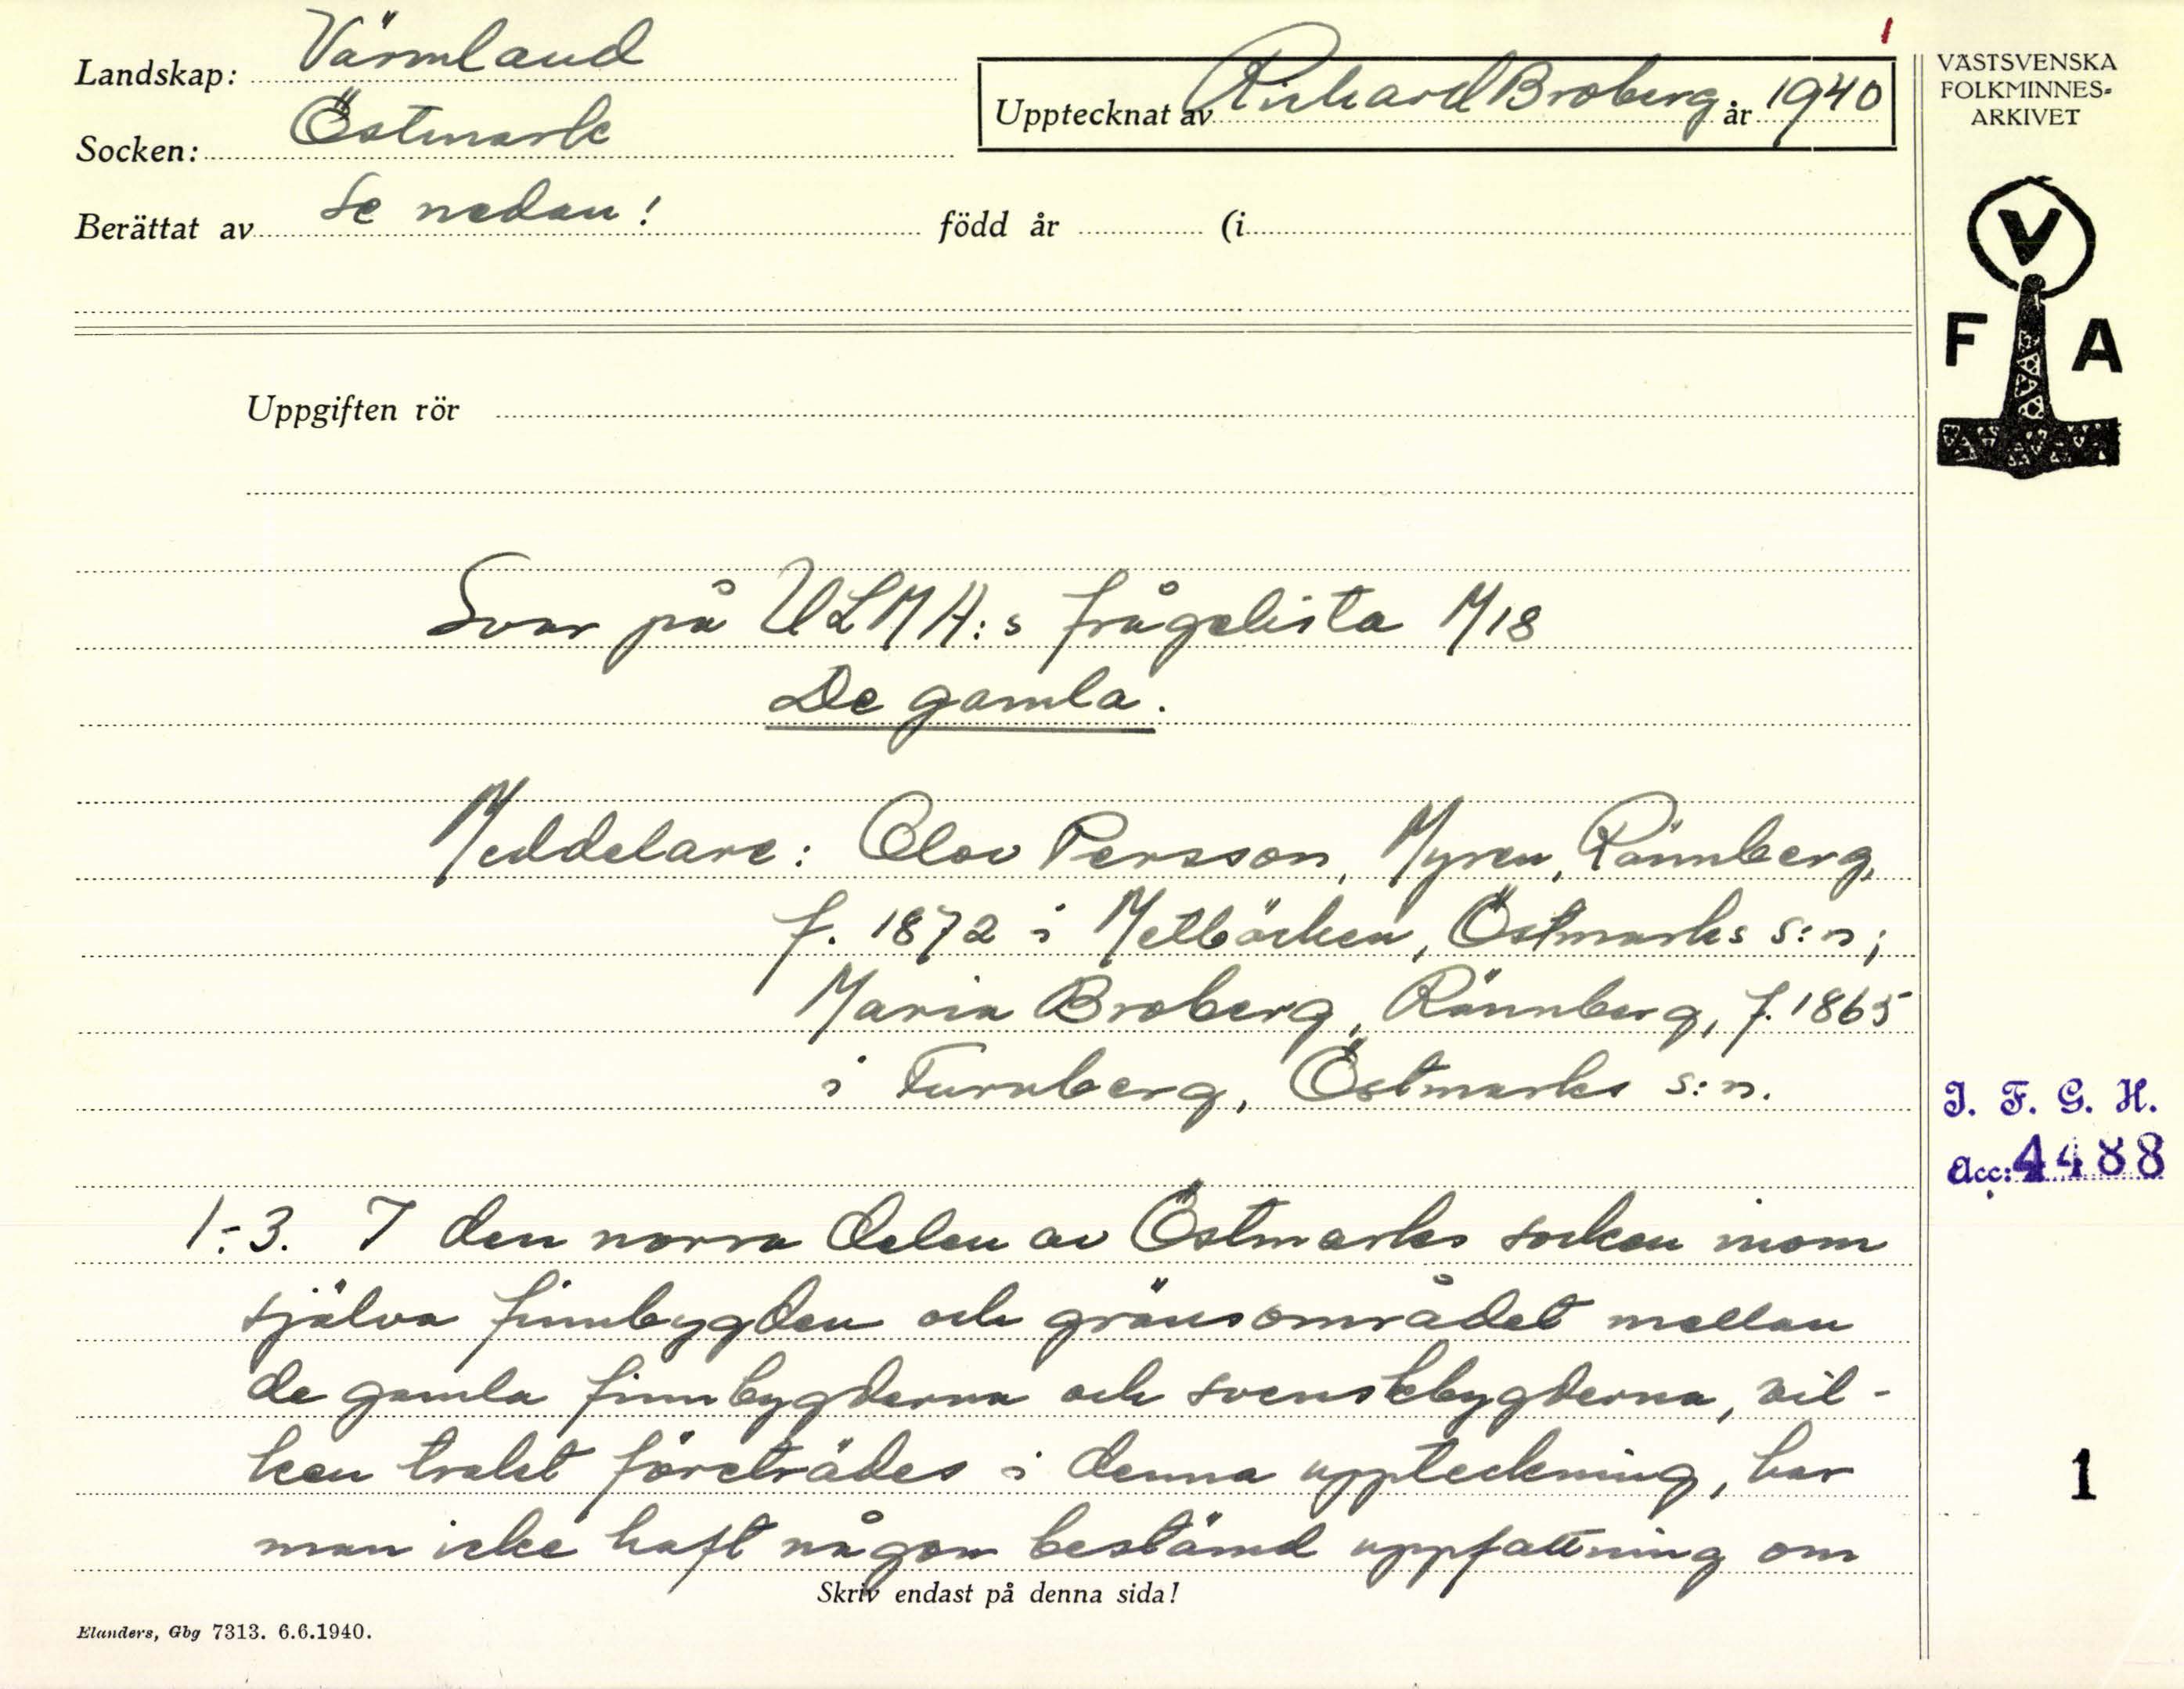 1
Landskap: Värmland
Socken: Östmark
Berättat av Se nedan! född år (i
Upptecknat av Richard Broberg år 1940
VÄSTSVENSKA
FOLKMINNES-
ARKIVET
V
F A
Uppgiften rör
Svar på ULMA:s frågelista M18
De gamla.
Meddelare: Olov Persson, Myren, Rännberg,
f. 1872 i Metbäcken, Östmarks s:n;
Maria Broberg, Rännberg, f. 1865
i Furuberg, Östmarks s:n.
I. F. G. H.
Acc: 4488
1-3. I den norra delen av Östmarks socken inom
själva finnbygden och gränsområdet mellan
de gamla finnbygderna och svenskbygderna, vil-
ken trakt företrädes i denna uppteckning, har
man icke haft någon bestämd uppfattning om
1
Skriv endast på denna sida!
Elanders, Gbg 7313. 6.6.1940.